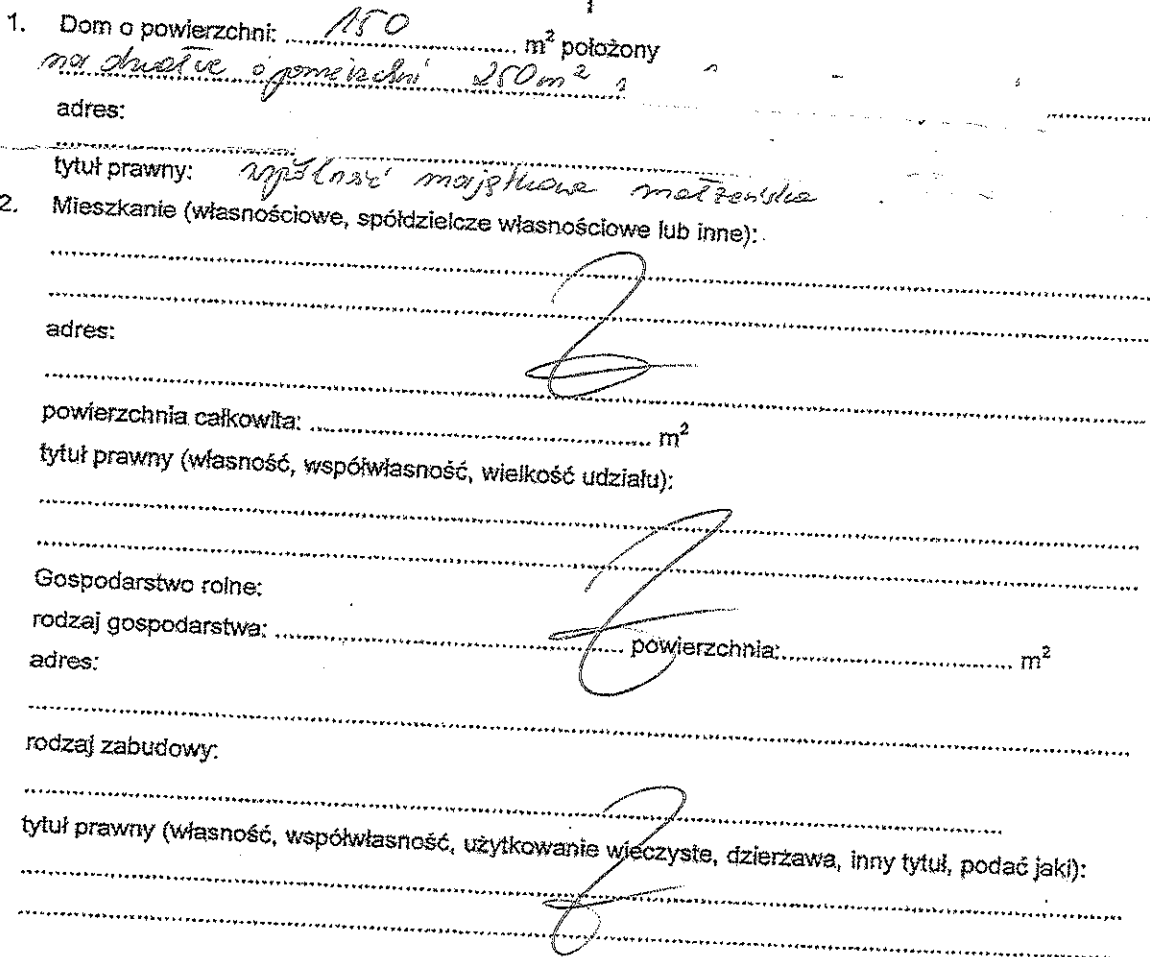 1. Dom o powierzchni: 150 m² położony
na działce o powierzchni 250m²
adres:
tytuł prawny: wspólność majątkowa małżeńska
2. Mieszkanie (własnościowe, spółdzielcze własnościowe lub inne):
adres:
powierzchnia całkowita: m²
tytuł prawny (własność, współwłasność, wielkość udziału):
Gospodarstwo rolne:
rodzaj gospodarstwa: powierzchnia: m²
adres:
rodzaj zabudowy:
tytuł prawny (własność, współwłasność, użytkowanie wieczyste, dzierżawa, inny tytuł, podać jaki):